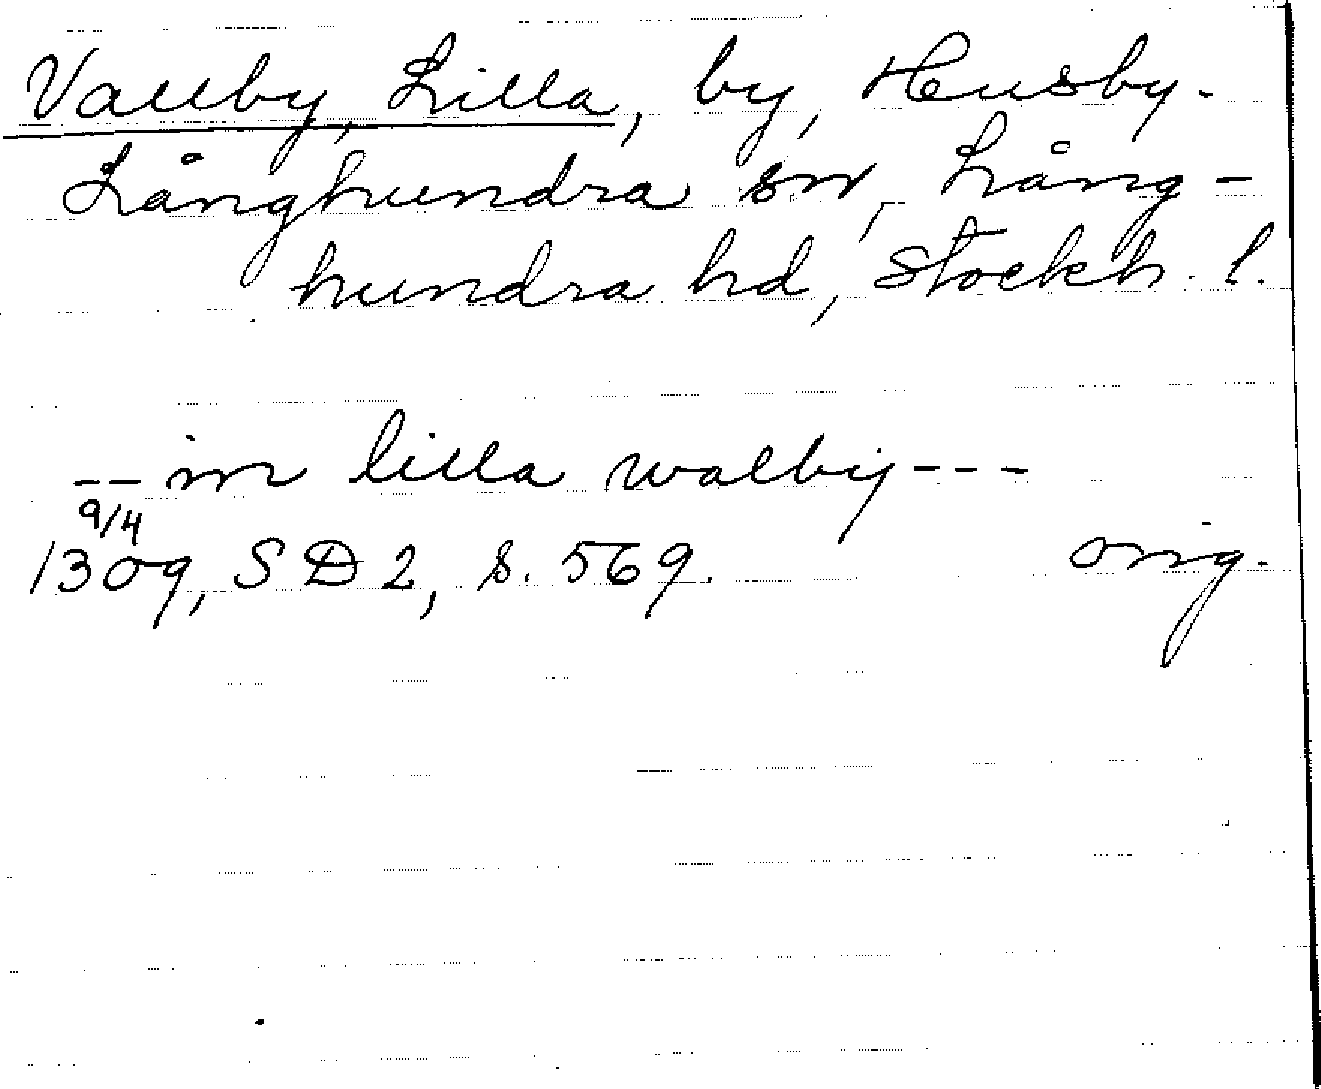 Vallby, Lilla, by, Husby-
Långhundra sn, Lång-
hundra hd, Stockh. l.
-- in lilla walby ---
9/4
1309, SD 2, s. 569. orig.